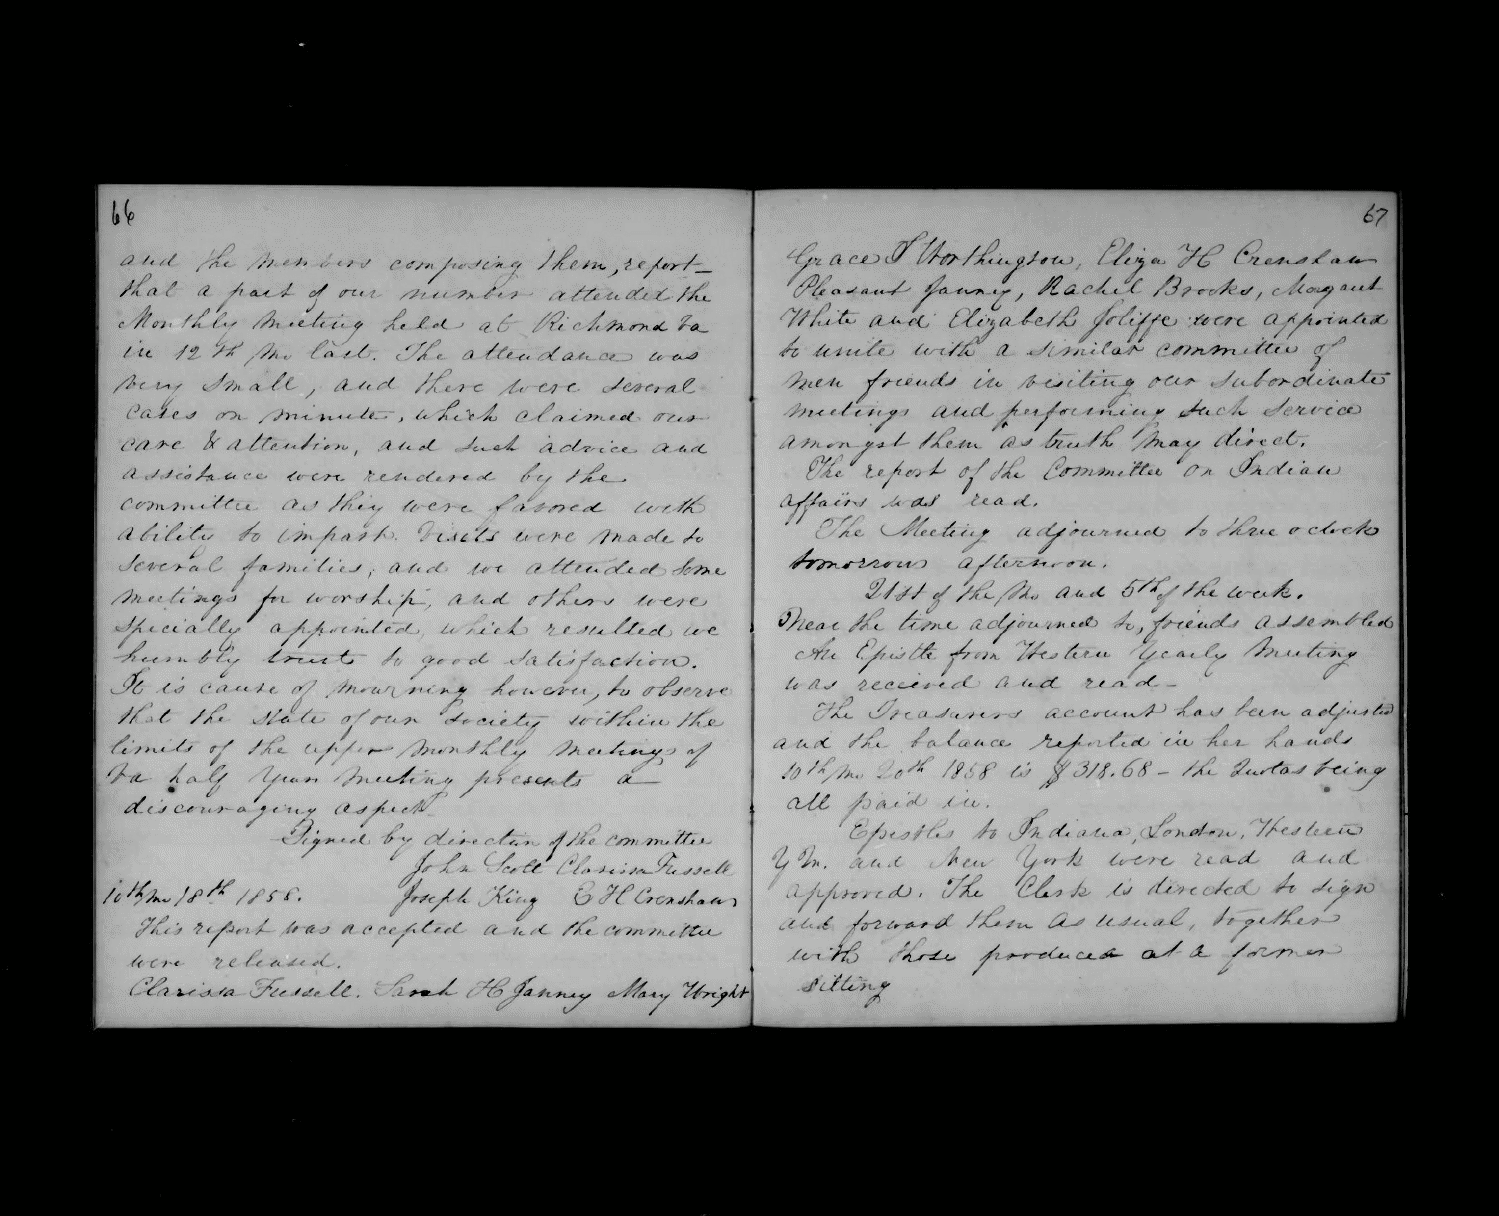 66
and the members composing them, report—
that a part of our number attended the
Monthly Meeting held at Richmond Va
in 12th Mo last. The attendance was
very small, and there were several
cases on minute, which claimed our
care & attention, and such advice and
assistance were rendered by the
committee as they were favored with
ability to impart. Visits were made to
several families, and we attended some
meetings for worship, and others were
specially appointed, which resulted we
humbly trust to good satisfaction.
It is cause of mourning however, to observe
that the state of our society within the
limits of the upper monthly meetings of
Va half Years meeting presents a—
discouraging aspect.
Signed by direction of the committee
John Scott Clarissa Fussell
10th Mo 18th 1858. Joseph King E H Crenshaw
This report was accepted and the committee
were released.
Clarissa Fussell. Sarah H Janney Mary Wright
67
Grace S Worthington, Eliza H Crenshaw
Pleasant Janney, Rachel Brooks, Margaret
White and Elizabeth Joliffe were appointed
to unite with a similar committee of
men friends in visiting our subordinate
meetings and performing such service
amongst them as truth may direct.
The report of the Committee on Indian
affairs was read.
The Meeting adjourned to three o clock
tomorrow afternoon.
21st of the Mo and 5th of the week.
Near the time adjourned to, friends assembled
An Epistle from Western Yearly Meeting
was recieved and read—
The Treasurers account has been adjusted
and the balance reported in her hands
10th Mo 20th 1858 is $318.68 — the Quotas being
all paid in.
Epistles to Indiana, London, Western
Y M. and New York were read and
approved. The Clerk is directed to sign
and forward them as usual, together
with those produced at a former
sitting